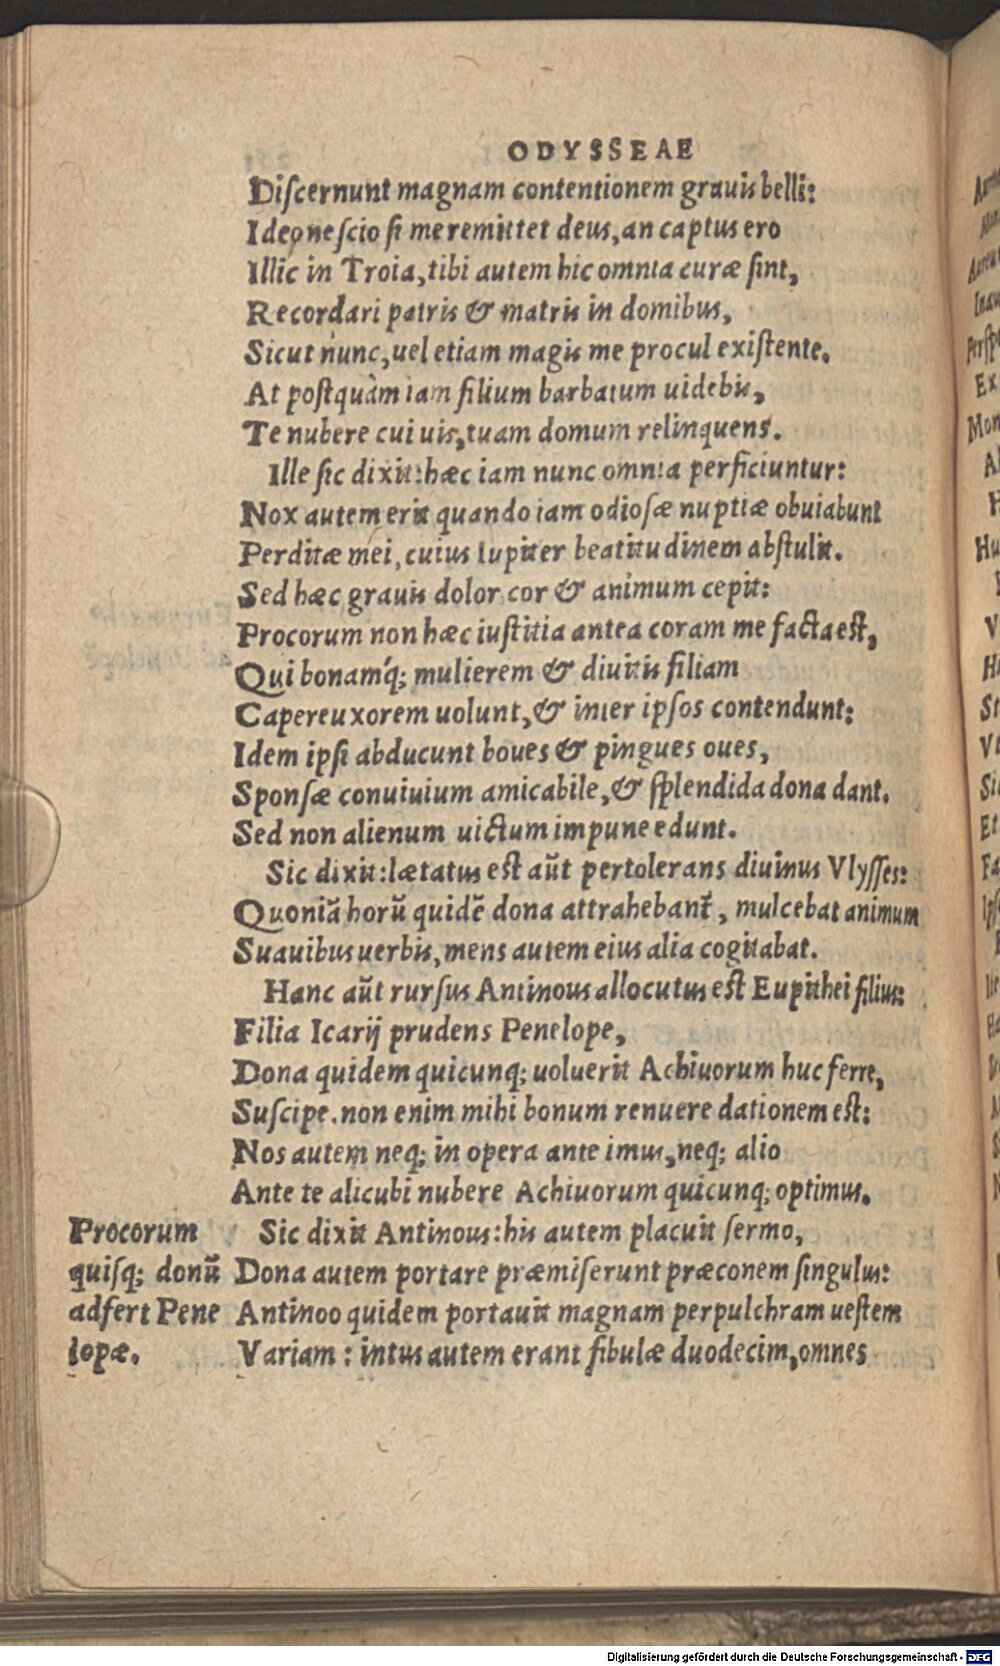 ODYSSEAE
Diſcernunt magnam contentionem grauis belli:
Ideo neſcio ſi me remittet deus, an captus ero
Illic in Troia, tibi autem hic omnia curæ ſint,
Recordari patris & matris in domibus,
Sicut nunc, uel etiam magis me procul exiſtente.
At poſtquàm iam filium barbatum uidebis,
Te nubere cui uis, tuam domum relinquens.
Ille ſic dixit: hæc iam nunc omnia perficiuntur:
Nox autem erit quando iam odioſæ nuptiæ obuiabunt
Perditæ mei, cuius Iupiter beatitudinem abſtulit.
Sed hæc grauis dolor cor & animum cepit:
Procorum non hæc iuſtitia antea coram me facta eſt,
Qui bonamq́; mulierem & diuitis filiam
Capere uxorem uolunt, & inter ipſos contendunt:
Idem ipſi abducunt boues & pingues oues,
Sponſæ conuiuium amicabile, & ſplendida dona dant.
Sed non alienum uictum impune edunt.
Sic dixit: lætatus eſt aũt pertolerans diuinus Vlyſſes:
Quoniã horũ quidẽ dona attrahebant̃, mulcebat animum
Suauibus uerbis, mens autem eius alia cogitabat.
Hanc aũt rurſus Antinous allocutus eſt Eupithei filius:
Filia Icarij prudens Penelope,
Dona quidem quicunq; uoluerit Achiuorum huc ferre,
Suſcipe. non enim mihi bonum renuere dationem eſt:
Nos autem neq; in opera ante imus, neq; alio
Ante te alicubi nubere Achiuorum quicunq; optimus.
Sic dixit Antinous: his autem placuit ſermo,
Dona autem portare præmiſerunt præconem ſingulus:
Antinoo quidem portauit magnam perpulchram ueſtem
Variam: intus autem erant fibulæ duodecim, omnes
Procorum
quiſq; donũ
adfert Pene
lopæ.
Digitalisierung gefördert durch die Deutsche Forschungsgemeinschaft - DFG